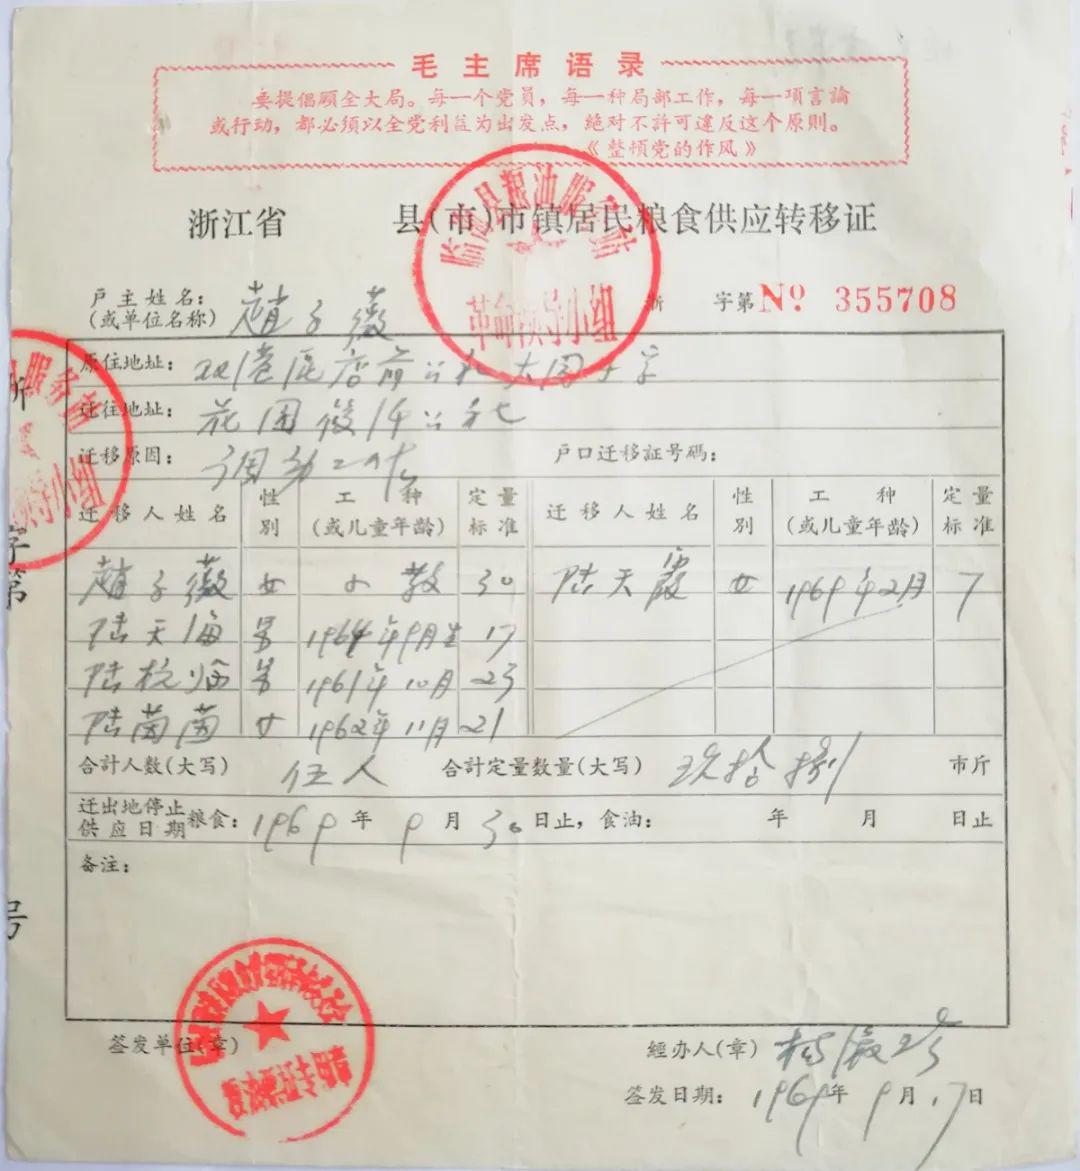 毛主席语录
要提倡顾全大局。每一个党员,每一种局部工作,每一項言論
或行动,都必须以全党利益为出发点,絶对不許可違反这个原则。
《整頓党的作风》
浙江省 县(市)市镇居民粮食供应转移证
临海县粮油服务站
革命领导小组
户主姓名:
(或单位名称) 趙子薇
浙 字第 Nº 355708
原住地址: 双港区店前公社
迁往地址: 花园 公社
迁移原因: 调动工作 户口迁移証号碼:
迁移人姓名 性别 工种(或儿童年龄) 定量标准 迁移人姓名 性别 工种(或儿童年龄) 定量标准
趙子薇 女 小教 30 陆天霞 女 1969年2月 7
陆天海 男 1964年9月生 17
陆杭临 男 1961年10月 23
陆茵茵 女 1962年11月 21
合計人数(大写) 伍人 合計定量数量(大写) 玖拾捌 市斤
迁出地停止供应日期 粮食: 1969年9月30日止,食油: 年 月 日止
备注:
签发单位(章)
經办人(章)
签发日期: 1969年9月17日
服务站
小组
字第
号